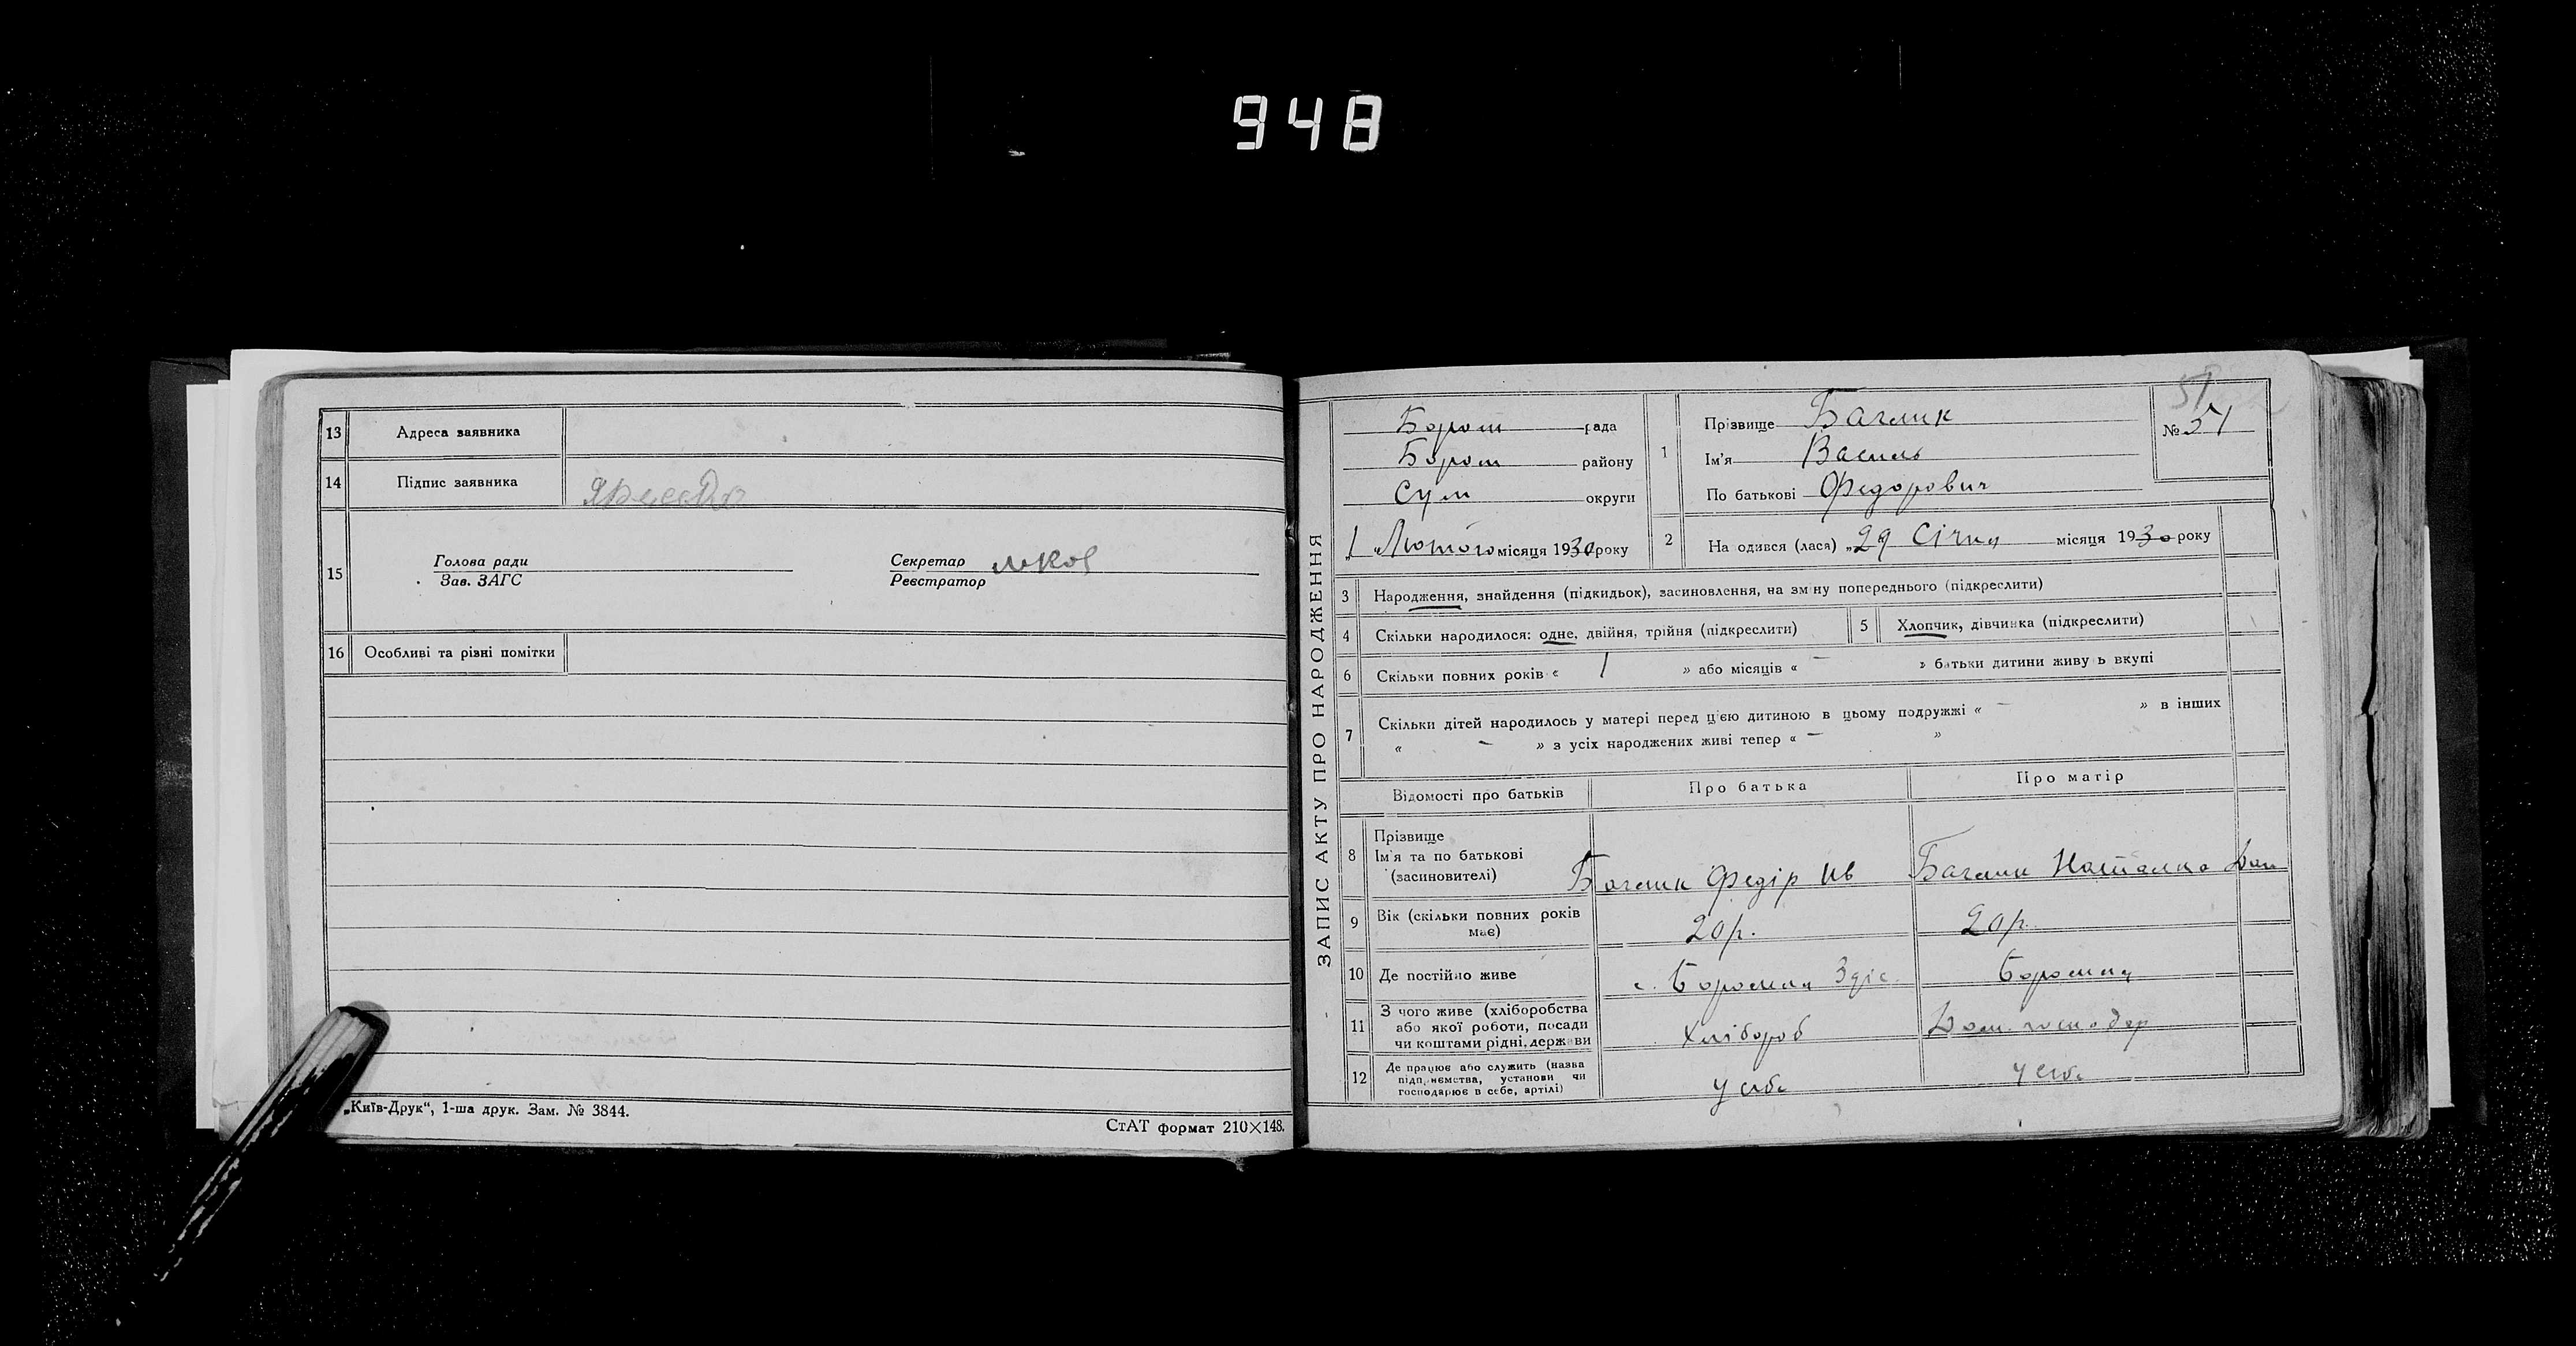 948
13 Адреса заявника
14 Підпис заявника
15 Голова ради
Зав. ЗАГС
Секретар
Реєстратор
16 Особливі та різні помітки
„Київ-Друк“, 1-ша друк. Зам. № 3844.
СтАТ формат 210×148.
ЗАПИС АКТУ ПРО НАРОДЖЕННЯ
Бором рада
Бором району
Сум округи
„1 „Лютого місяця 1930 року
51
№ 51
1 Прізвище Баглик
Ім'я Василь
По батькові Федорович
2 На одився (лася) „29 Січня місяця 1930 року
3 Народження, знайдення (підкидьок), засиновлення, на зміну попереднього (підкреслити)
4 Скільки народилося: одне, двійня, трійня (підкреслити)
5 Хлопчик, дівчинка (підкреслити)
6 Скільки повних років « 1 » або місяців « — » батьки дитини живу ь вкупі
7 Скільки дітей народилось у матері перед цією дитиною в цьому подружжі « — » в інших
« — » з усіх народжених живі тепер « — »
Відомості про батьків Про батька Про матір
8 Прізвище
Ім'я та по батькові
(засиновителі)
Баглик Федір Ів Баглик Наталка
9 Вік (скільки повних років
має)
20 р. 20 р.
10 Де постійно живе с. Боромля Боромля
11 З чого живе (хліборобства
або якої роботи, посади
чи коштами рідні, держави
Хлібороб Дом. господар
12 Де працює або служить (назва
підприємства, установи чи
господарює в себе, артілі)
у себе у себе